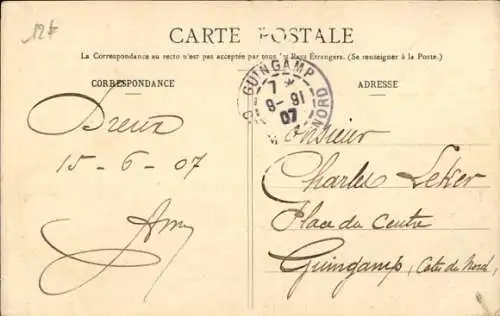 12f
CARTE POSTALE
La Correspondance au recto n'est pas acceptée par tous les Pays Étrangers. (Se renseigner à la Poste.)
CORRESPONDANCE
ADRESSE
GUINGAMP
7 *
9-91
07
NORD
Dreux
15-6-07
Monsieur
Charles Leker
Place du Centre
Guingamp, Côtes du Nord,